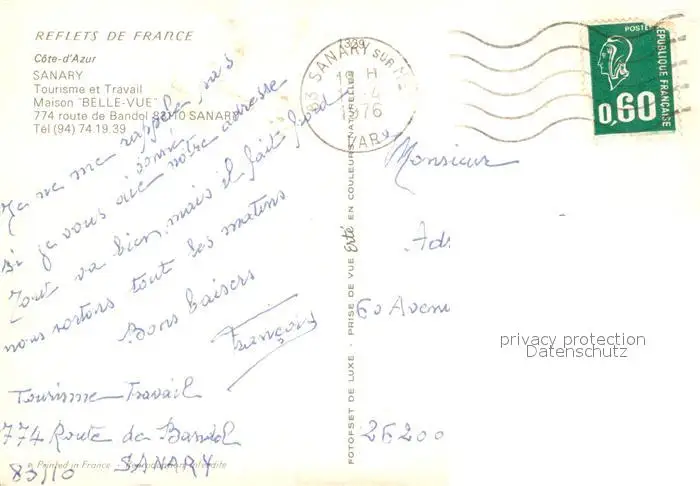 REFLETS DE FRANCE
Côte-d'Azur
SANARY
Tourisme et Travail
Maison "BELLE-VUE"
774 route de Bandol 83110 SANARY
Tél (94) 74.19.39
Je ne me rappelle pas
si je vous ai donné notre adresse
Tout va bien, mais il fait froid
nous sortons tout les matins
Bons baisers
François
Tourisme Travail
774 Route de Bandol
83110 SANARY
Printed in France - Reproduction interdite
FOTOFSET DE LUXE - PRISE DE VUE Erté EN COULEURS NATURELLES
1339
83 SANARY SUR MER
H
4
1976
VAR
POSTES
REPUBLIQUE FRANÇAISE
0,60
Monsieur
Ad
60 Avenu
26200
privacy protection
Datenschutz